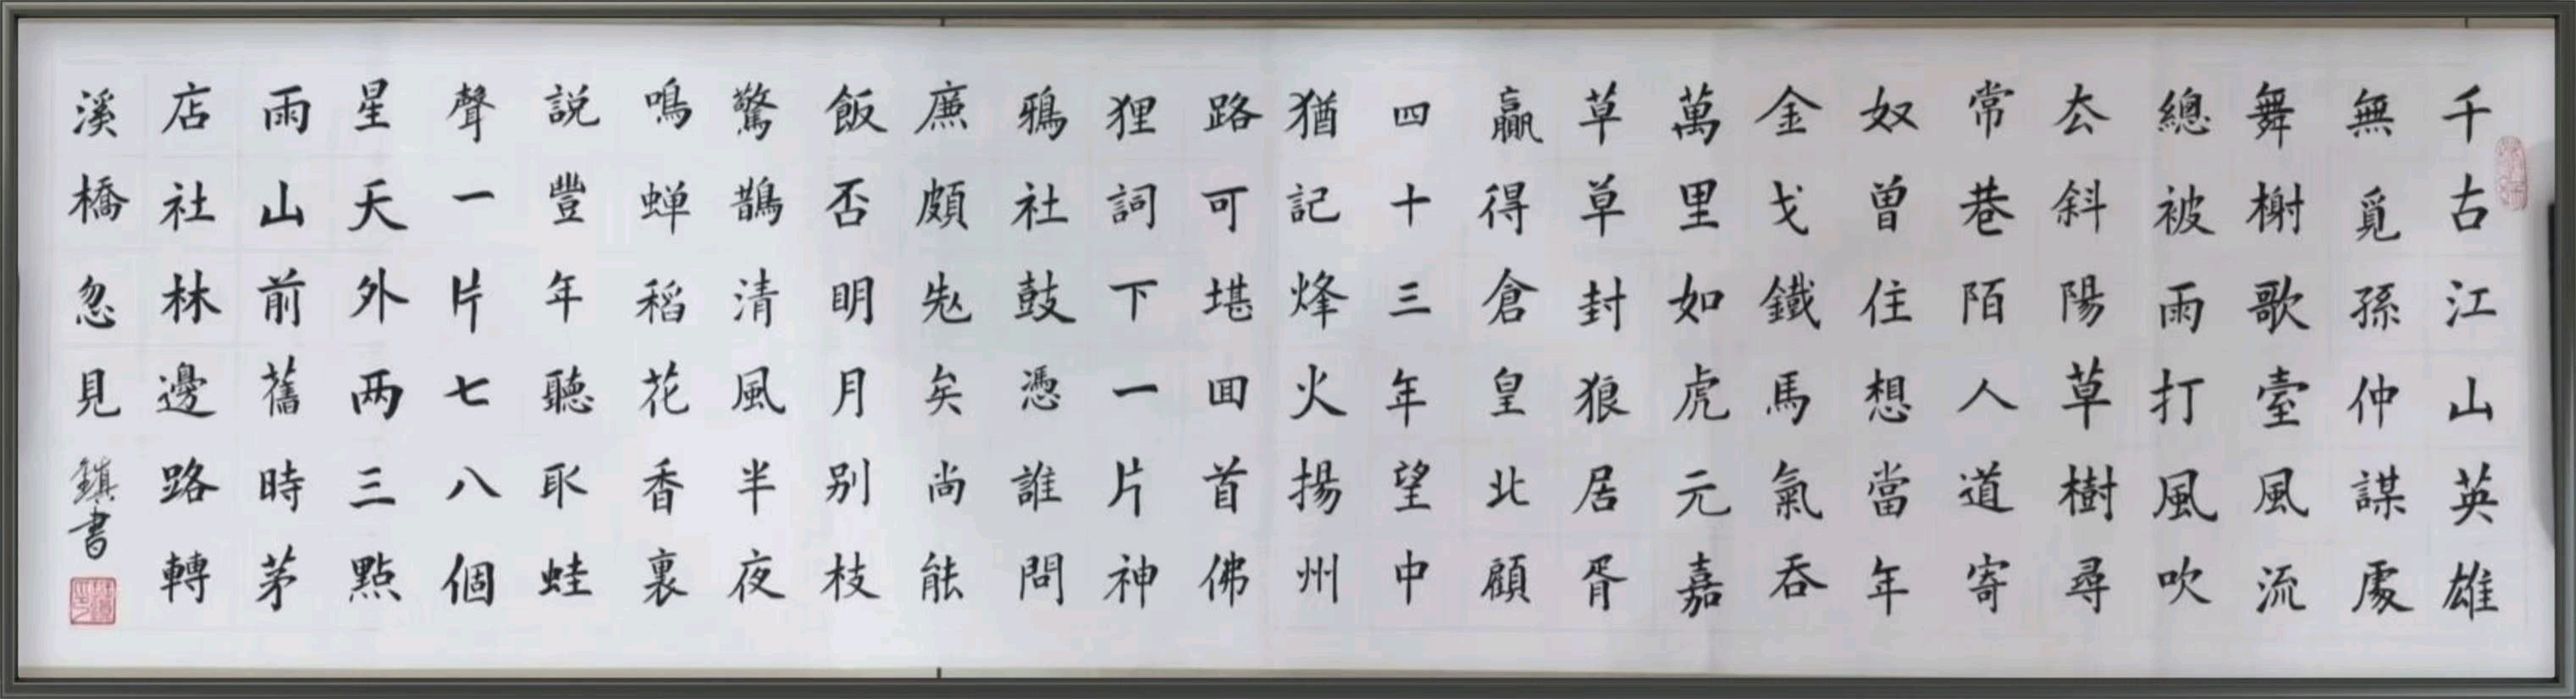 千古江山英雄
無覓孫仲謀處
舞榭歌臺風流
總被雨打風吹
厺斜陽草樹尋
常巷陌人道寄
奴曾住想當年
金戈鐵馬氣吞
萬里如虎元嘉
草草封狼居胥
贏得倉皇北顧
四十三年望中
猶記烽火揚州
路可堪回首佛
狸祠下一片神
鴉社鼓憑誰問
廉頗老矣尚能
飯否明月别枝
驚鵲清風半夜
鳴蝉稻花香裏
説豐年聽取蛙
聲一片七八個
星天外两三點
雨山前舊時茅
店社林邊路轉
溪橋忽見
鎮書